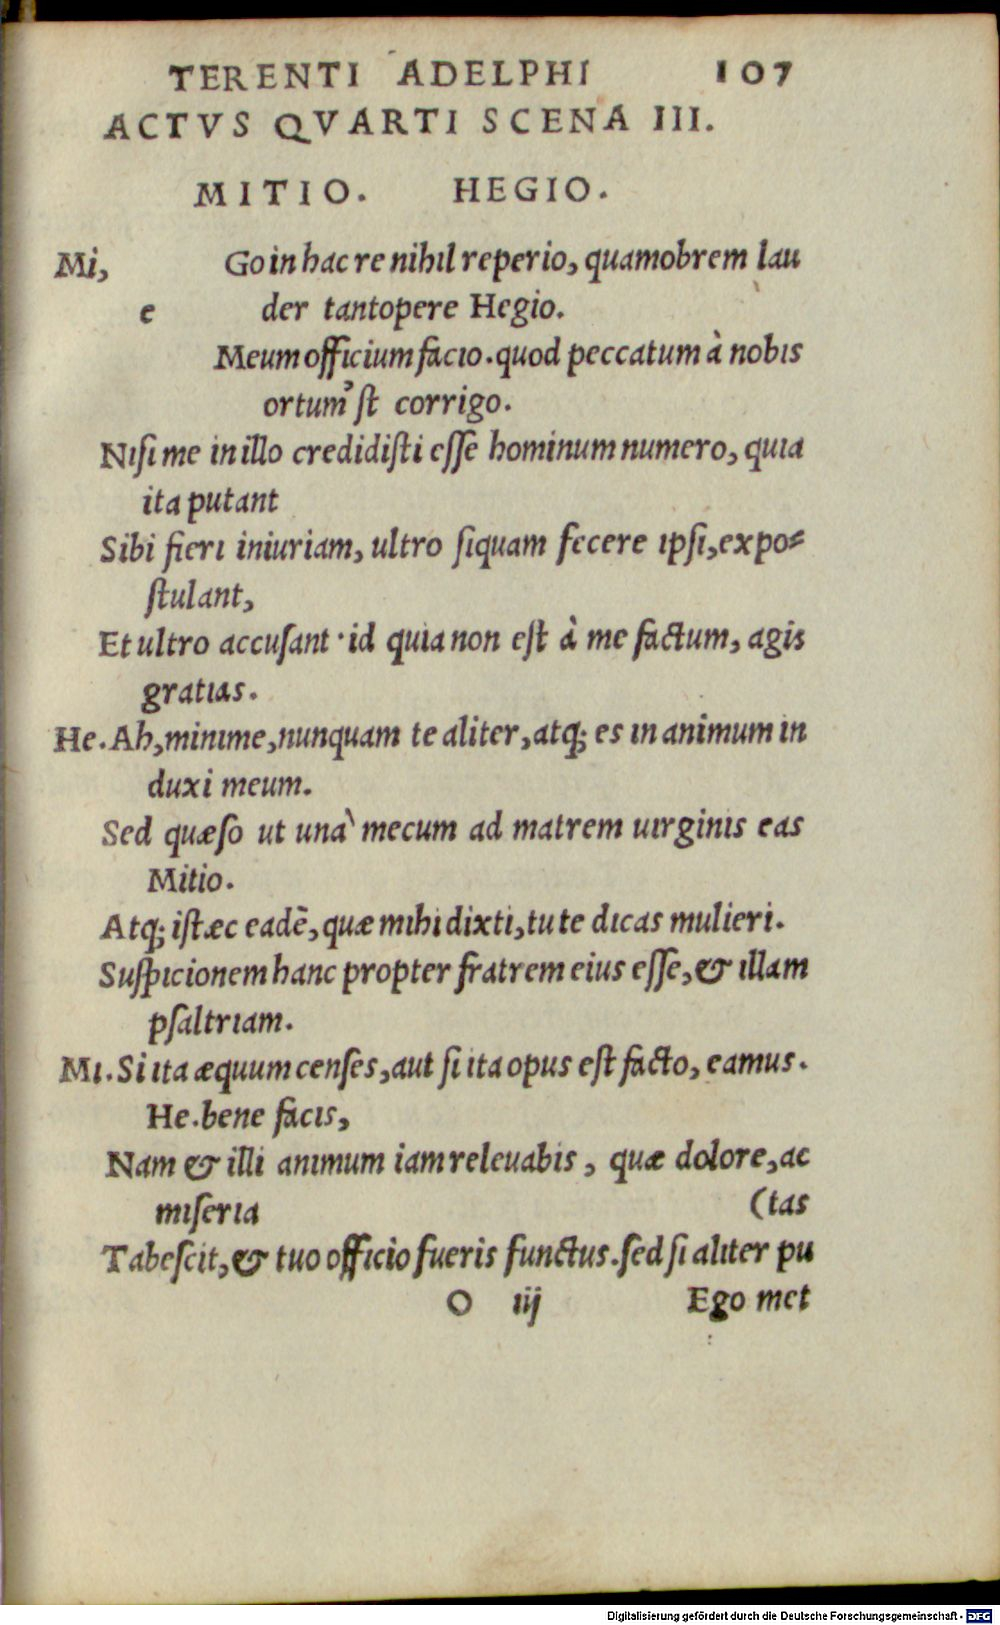 TERENTI ADELPHI 107
ACTVS QVARTI SCENA III.
MITIO. HEGIO.
Mi, Go in hac re nihil reperio, quamobrem lau
e der tantopere Hegio.
Meum officium facio. quod peccatum à nobis
ortum'ſt corrigo.
Niſi me in illo credidiſti eſſe hominum numero, quia
ita putant
Sibi fieri iniuriam, ultro ſiquam fecere ipſi, expo=
ſtulant,
Et ultro accuſant· id quia non eſt à me factum, agis
gratias.
He. Ah, minime, nunquam te aliter, atq; es in animum in
duxi meum.
Sed quæſo ut unà mecum ad matrem uirginis eas
Mitio.
Atq; iſtæc eadē, quæ mihi dixti, tute dicas mulieri.
Suſpicionem hanc propter fratrem eius eſſe, & illam
pſaltriam.
Mi. Si ita æquum censes, aut ſi ita opus eſt facto, eamus.
He. bene facis,
Nam & illi animum iam releuabis, quæ dolore, ac
miſeria (tas
Tabeſcit, & tuo officio fueris functus. ſed ſi aliter pu
O iij Ego met
Digitalisierung gefördert durch die Deutsche Forschungsgemeinschaft - DFG